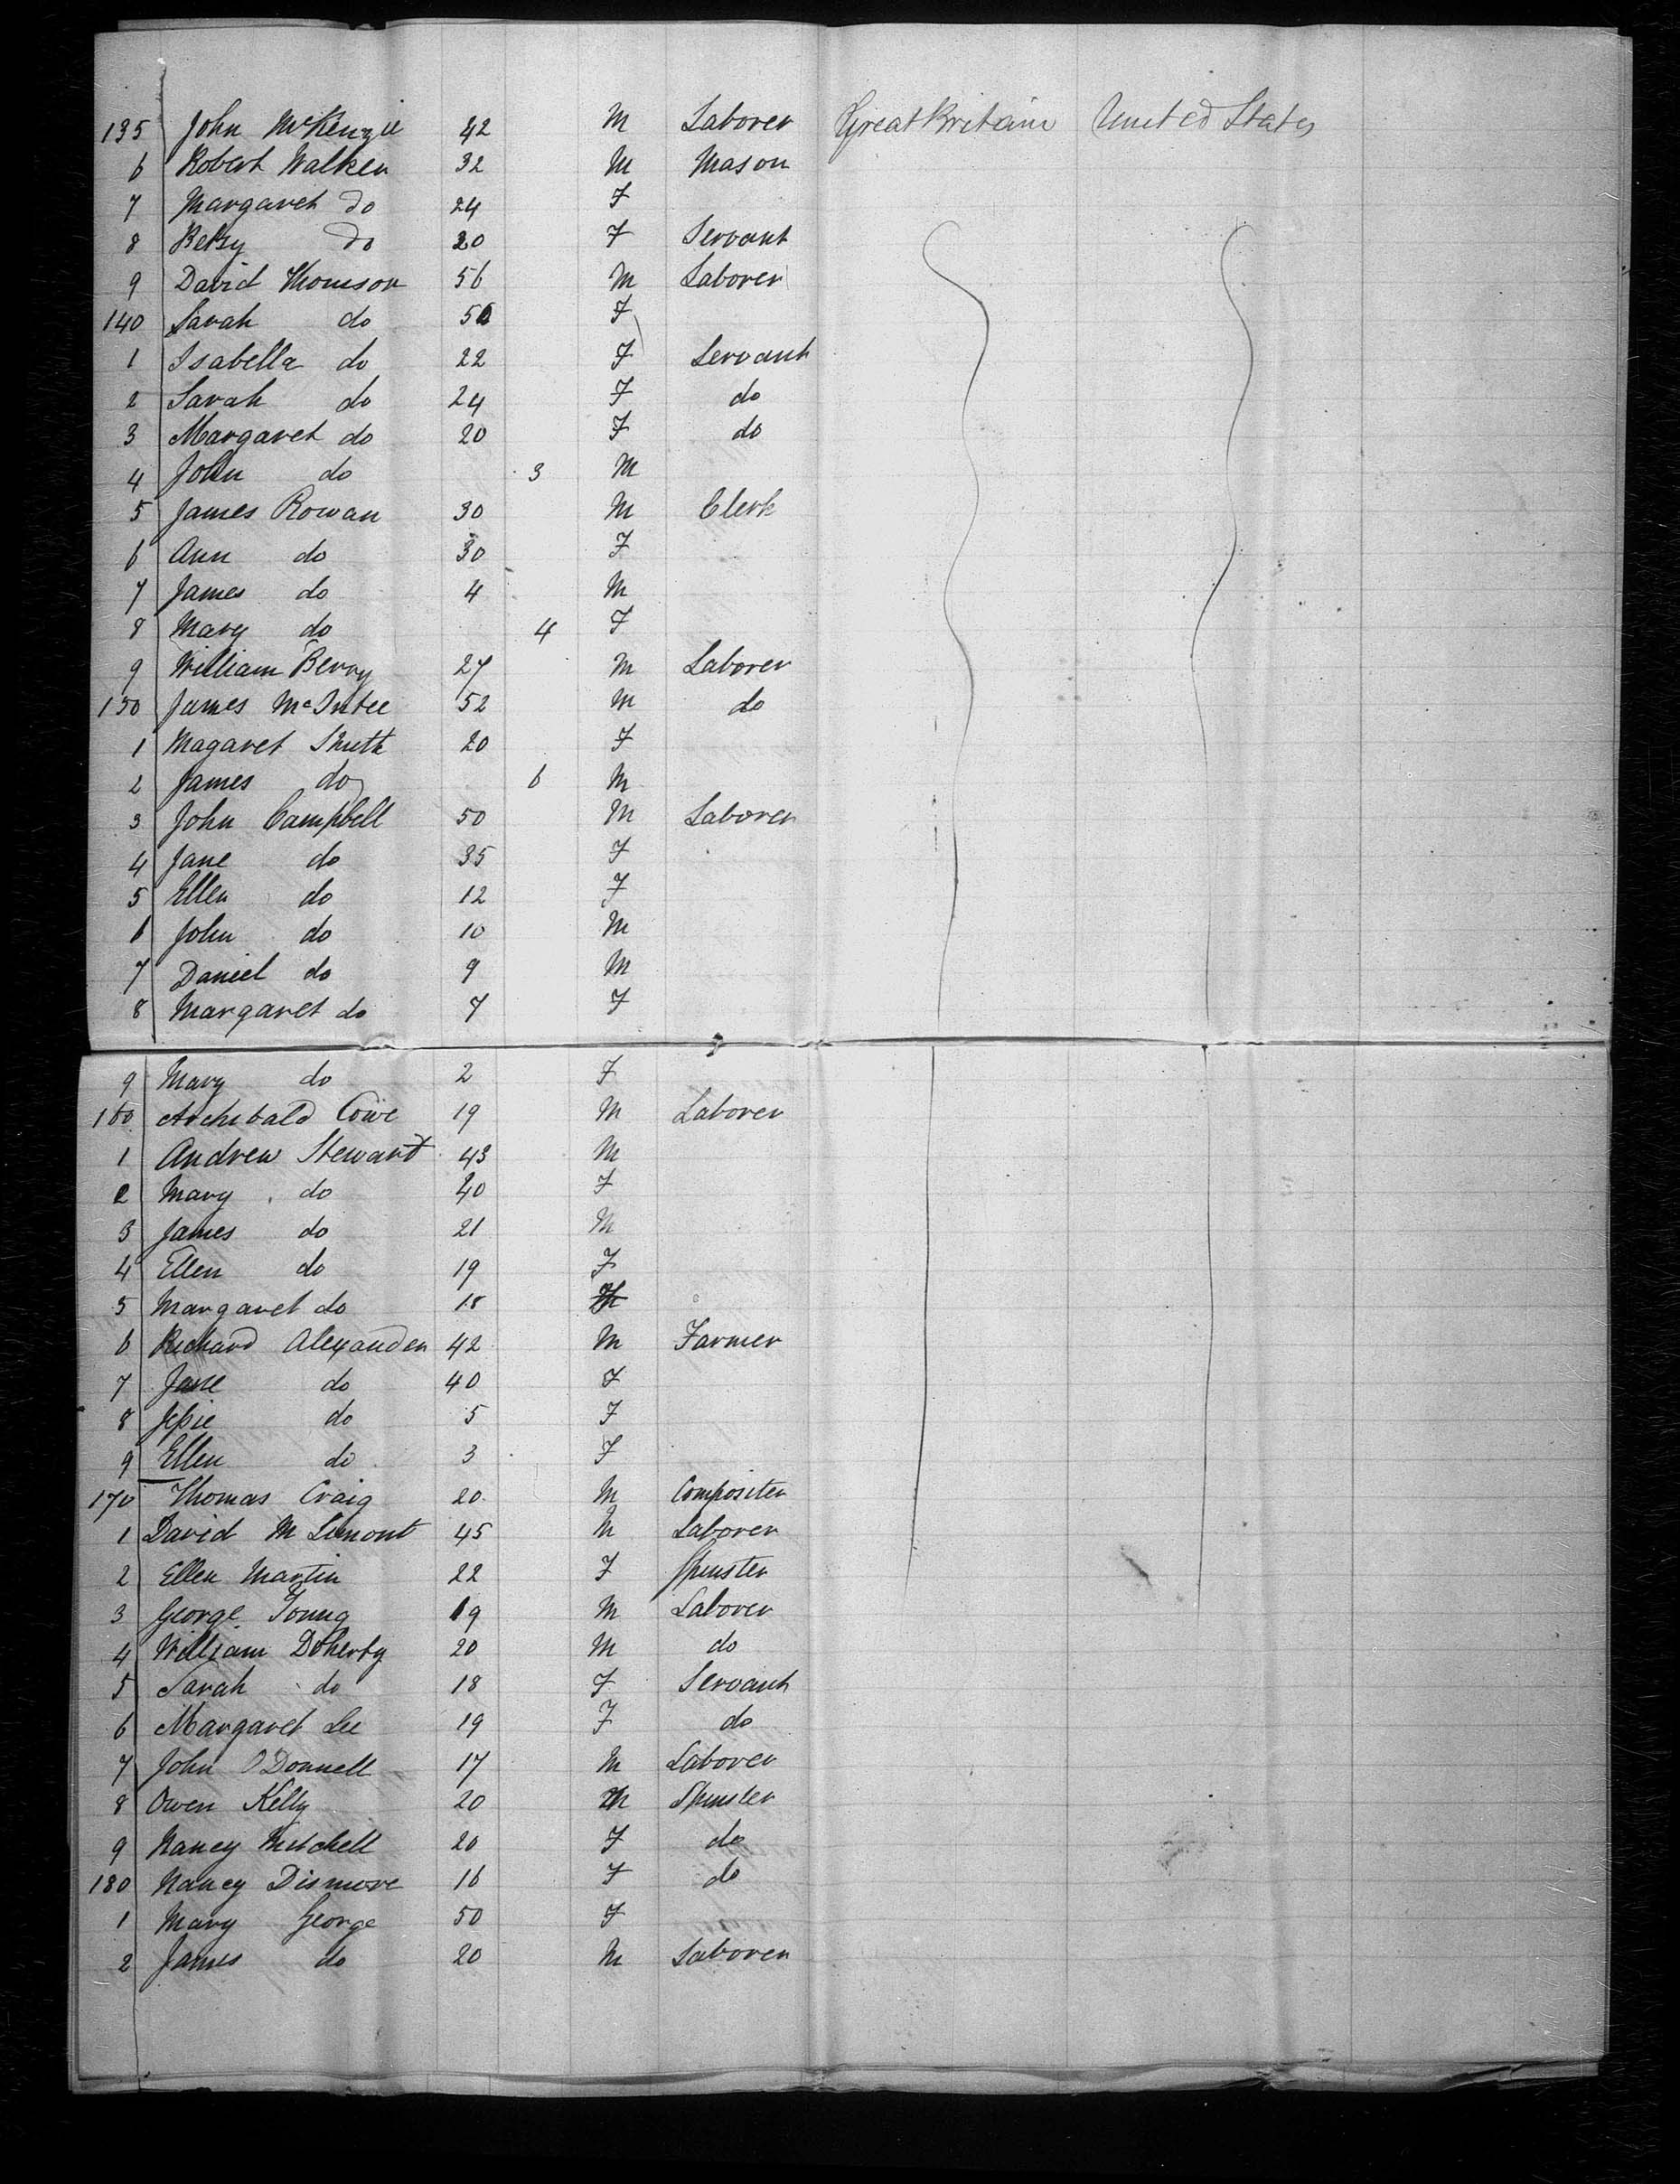 135 John McKenzie 42 M Laborer Great Britain United States
6 Robert Walker 32 M Mason
7 Margaret do 24 F
8 Betsy do 20 F Servant
9 David Thomson 56 M Laborer
140 Sarah do 56 F
1 Isabella do 22 F Servant
2 Sarah do 24 F do
3 Margaret do 20 F do
4 John do 3 M
5 James Rowan 30 M Clerk
6 Ann do 30 F
7 James do 4 M
8 Mary do 4 F
9 William Berry 27 M Laborer
150 James McIntee 52 M do
1 Magaret Smith 20 F
2 James do 6 M
3 John Campbell 50 M Laborer
4 Jane do 35 F
5 Ellen do 12 F
6 John do 10 M
7 Daniel do 9 M
8 Margaret do 7 F
9 Mary do 2 F
160 Archibald Cowe 19 M Laborer
1 Andrew Stewart 43 M
2 Mary do 40 F
3 James do 21 M
4 Ellen do 19 F
5 Margaret do 18
6 Richard Alexander 42 M Farmer
7 Jane do 40 F
8 Jessie do 5 F
9 Ellen do 3 F
170 Thomas Craig 20 M Compositer
1 David M Limont 45 M Laborer
2 Ellen Martin 22 F Spinster
3 George Young 19 M Laborer
4 William Doherty 20 M do
5 Sarah do 18 F Servant
6 Margaret Lee 19 F do
7 John O'Donnell 17 M Laborer
8 Owen Kelly 20 M Spinster
9 Nancy Mitchell 20 F do
180 Nancy Dismore 16 F do
1 Mary George 50 F
2 James do 20 M Laborer